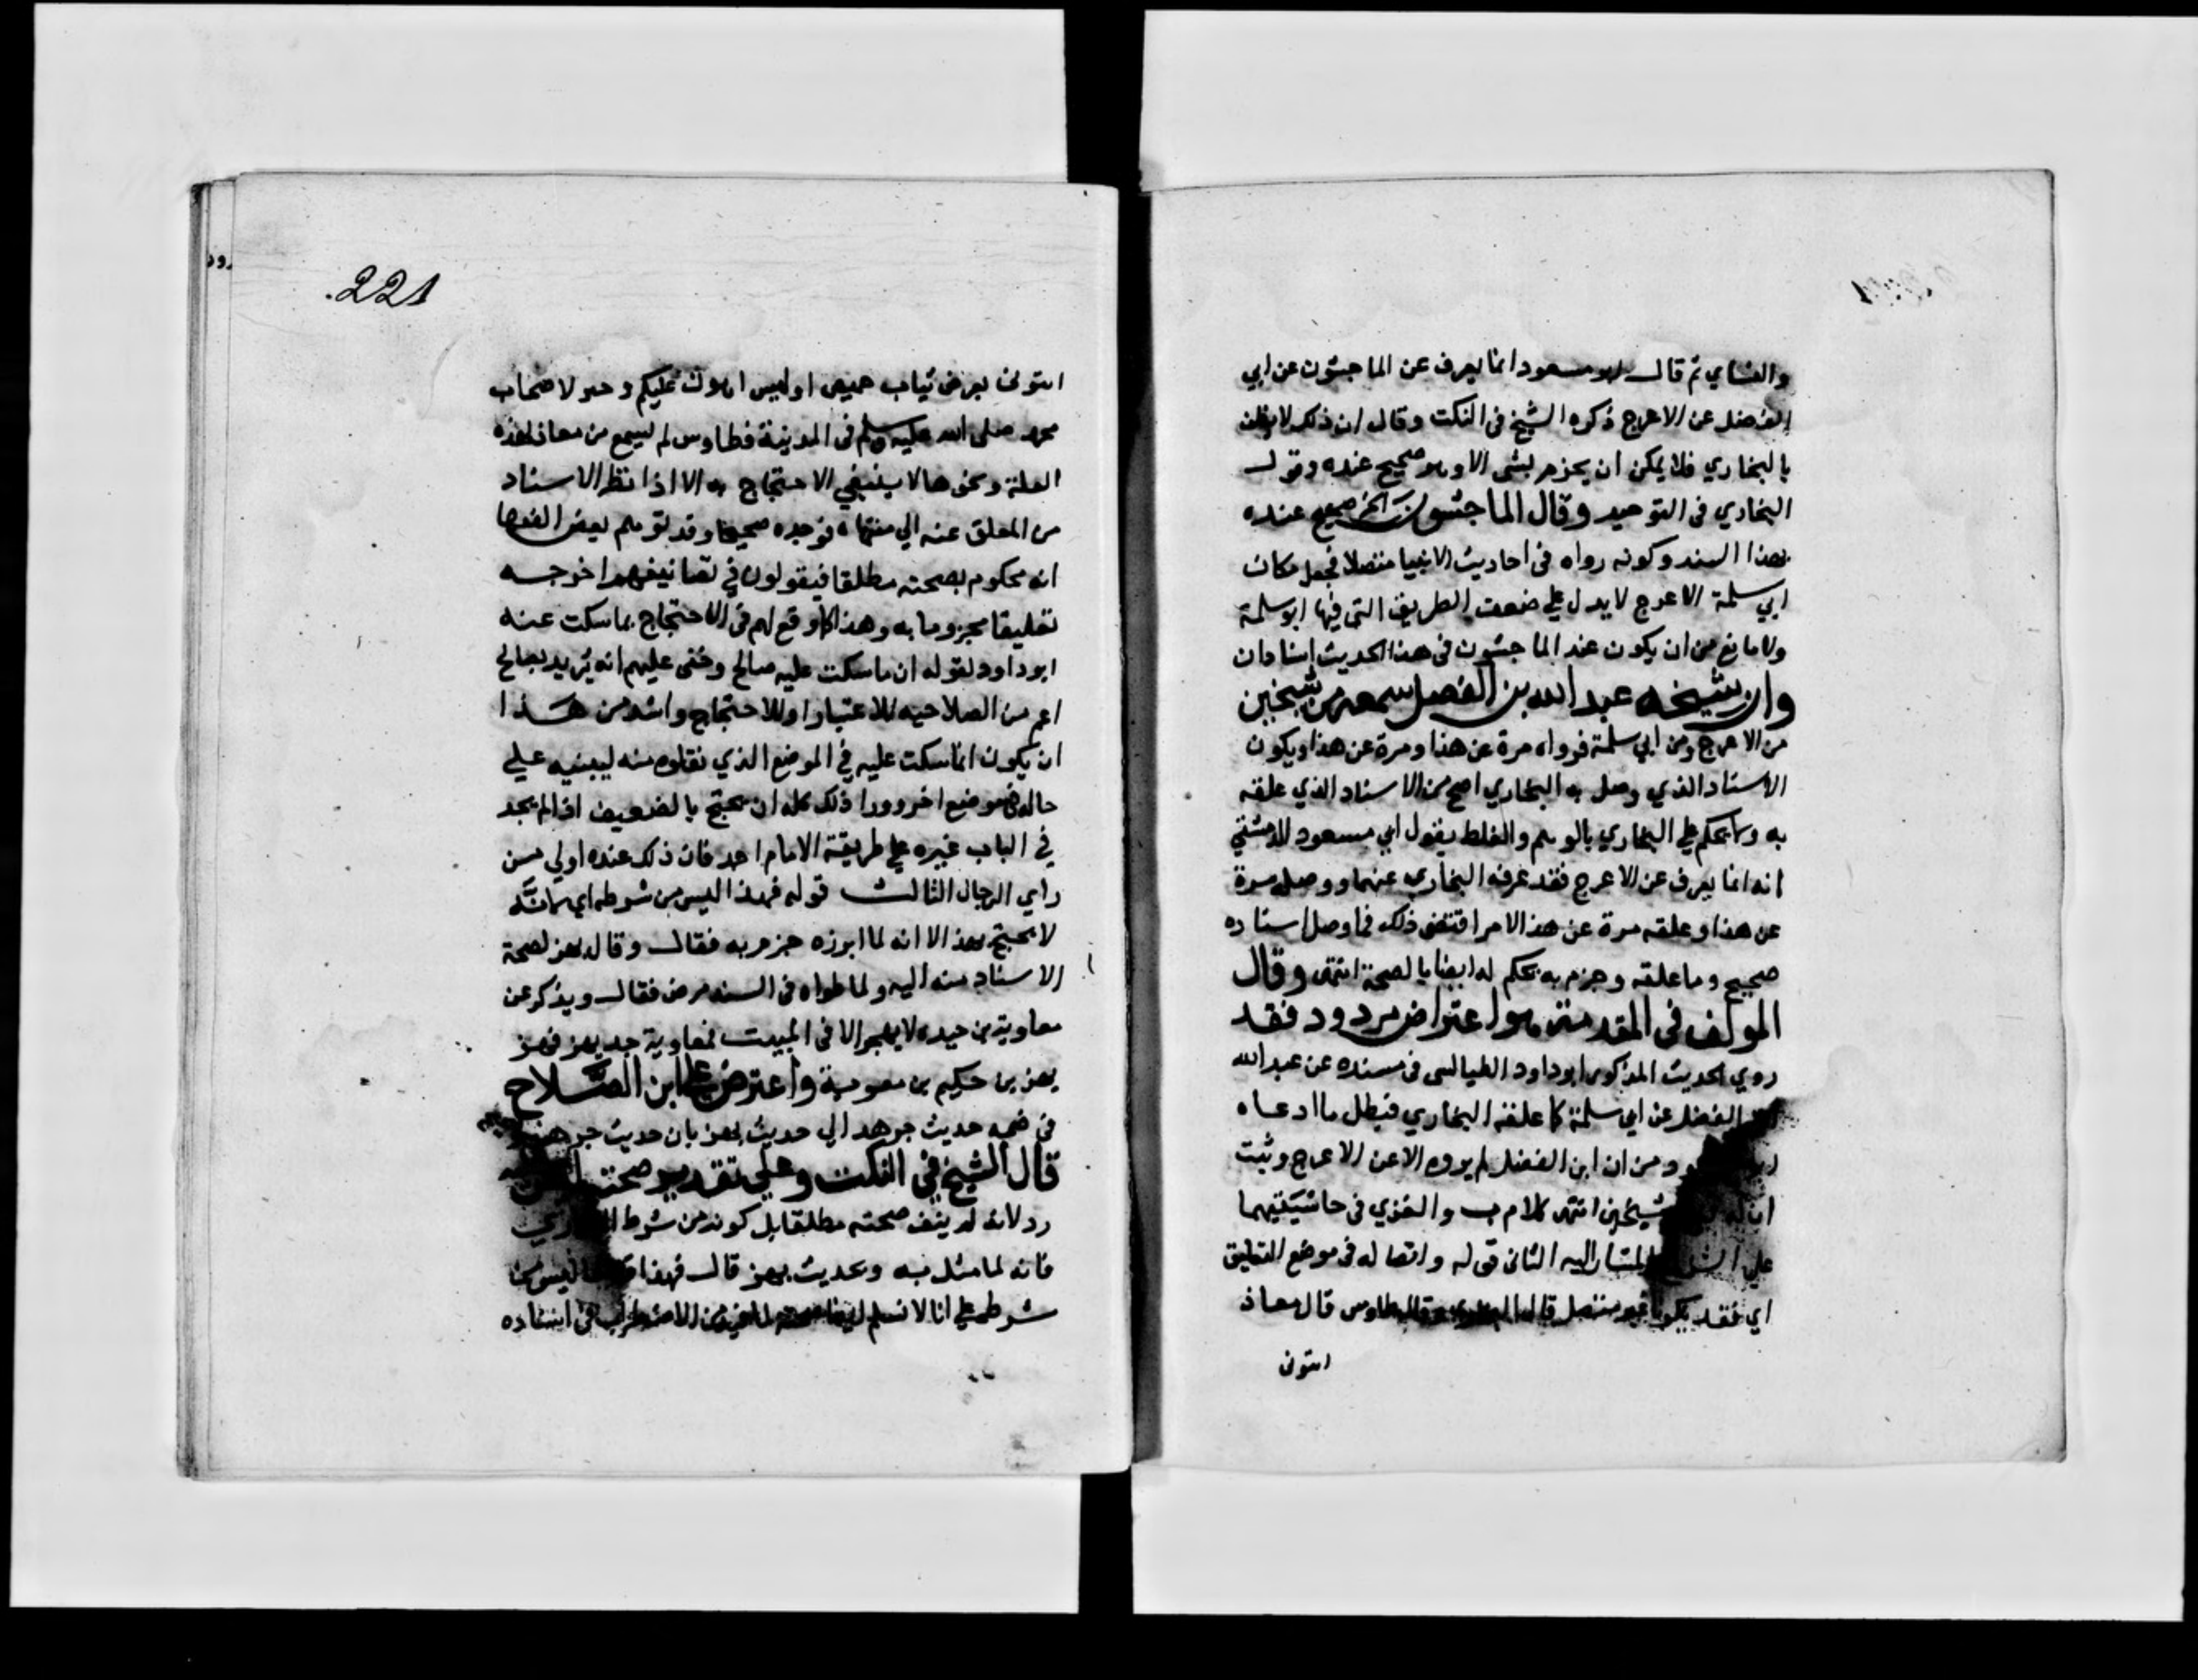 والنساي ثم قال ابو مسعود انما يعرف عن الماجشون عن ابي
الفضل عن الاعرج ذكره الشيخ في النكت وقال ان ذلك لا يظن
بالبخاري فلا يمكن ان يجزم بشي الا وهو صحيح عنده وقول
البخاري في التوحيد وقال الماجشون الخ صحيح عنده
بهذا السند وكونه رواه في احاديث الانبيا متصلا فجعل مكان
ابي سلمة الاعرج لا يدل علي ضعف الطريق التي فيها ابو سلمة
ولا مانع من ان يكون عند الماجشون في هذا الحديث اسنادان
وان شيخه عبد الله بن الفضل سمعه من شيخين
من الاعرج ومن ابي سلمة فرواه مرة عن هذا ومرة عن هذا ويكون
الاسناد الذي وصل به البخاري اصح من الاسناد الذي علقه
به ولا يحكم علي البخاري بالوهم والغلط بقول ابي مسعود الدمشقي
انه انما يعرف عن الاعرج فقد عرفه البخاري عنهما ووصله مرة
عن هذا وعلقه مرة عن هذا الامر اقتضي ذلك فما وصل اسناده
صحيح وما علقه وجزم به يحكم له ايضا بالصحة انتهي وقال
المولف في المقدمة هو اعتراض مردود فقد
روي الحديث المذكور ابو داود الطيالسي في مسنده عن عبد الله
الفضل عن ابي سلمة كما علقه البخاري فبطل ما ادعاه
ومن ان ابن الفضل لم يروه الا عن الاعرج وثبت
ان شيخين انتهي كلام ب والغزي في حاشيتيهما
علي المشار اليه الثاني قوله واتصاله في موضع التعليق
اي فقد يكون غير متصل قال وقال طاوس قال معاذ
ائتوني
221
ائتوني بعرض ثياب خميص او لبيس اهون عليكم وخير لاصحاب
محمد صلي الله عليه وسلم في المدينة فطاوس لم يسمع من معاذ لهذه
العلة ونحوها لا ينبغي الاحتجاج به الا اذا نظر الاسناد
من المعلق عنه الي منتهاه فوجده صحيحا وقد توهم بعض الفقها
انه محكوم بصحته مطلقا فيقولون في تصانيفهم اخرجه
تعليقا مجزوما به وهذا كما وقع لهم في الاحتجاج بما سكت عنه
ابو داود لقوله ان ما سكت عليه صالح وخفي عليهم انه يريد بصالح
اعم من الصلاحيه للاعتبار او للاحتجاج واشد من هذا
ان يكون انما سكت عليه في الموضع الذي نقلوه منه ليبنيه علي
حاله في موضع اخر وورا ذلك كله ان يحتج بالضعيف اذا لم يجد
في الباب غيره علي طريقة الامام احمد فان ذلك عنده اولي من
راي الرجال الثالث قوله فهذا ليس من شرطه اي لانه
لا يحتج ببهز الا انه لما ابرزه جزم به فقال وقال بهز لصحة
الاسناد منه اليه ولما طواه في السند مرض فقال ويذكر عن
معاوية بن حيده لا يهجر الا في المبيت فمعاوية جد بهز فبهز
بهز بن حكيم بن معوية واعترض علي ابن الصلاح
في ضمه حديث جرهد الي حديث بهز بان حديث جرهد
قال الشيخ في النكت وعلي تقدير صحته
رد لانه لم ينف صحته مطلقا بل كونه من شرط البخاري
فانه لما مثل به وبحديث بهز قال فهذا ليس من
شرطه علي انا لا نسلم ايضا صحته لما فيه من الاضطراب في اسناده